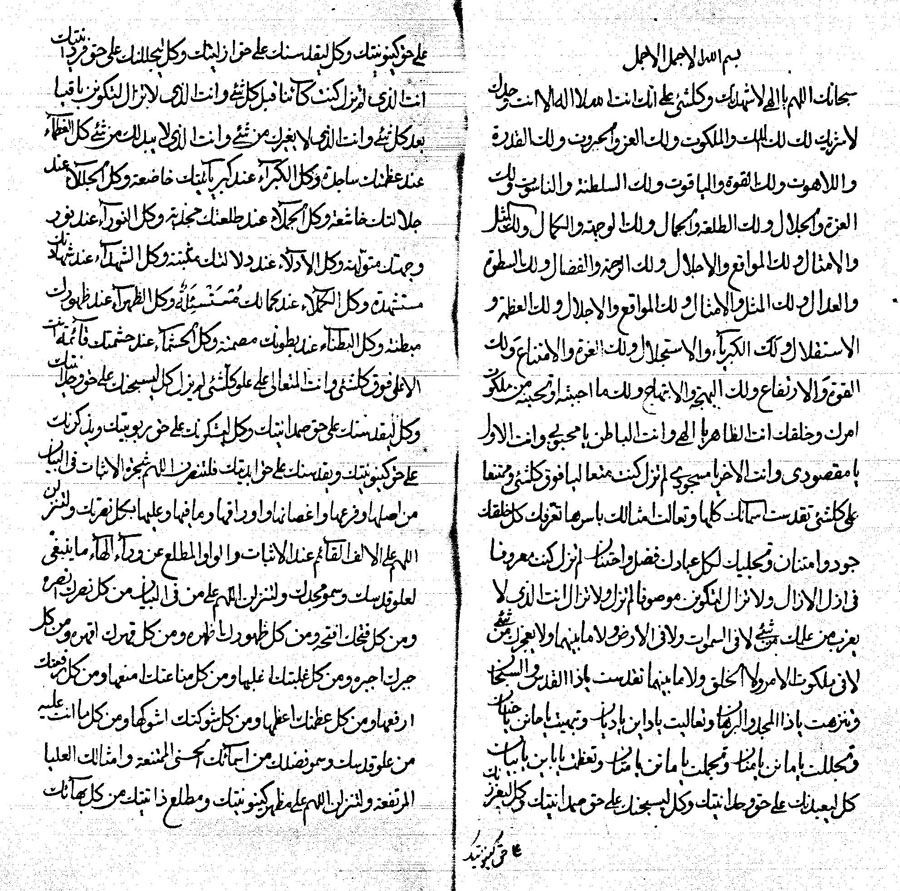 بسم الله الاجمل الاجمل
سبحانك اللهم يا الهي لاشهدنك وكلشئ على انك انت الله لا اله الا انت وحدك
لا شريك لك لك الملك والملكوت ولك العز والجبروت ولك القدرة
واللاهوت ولك القوة والياقوت ولك السلطنة والناسوت ولك
العزة والجلال ولك الطلعة والجمال ولك الوجهة والكمال ولك المثل
والامثال ولك المواقع والاجلال ولك الرحمة والفضال ولك السطوة
والعدال ولك المثل والامثال ولك المواقع والاجلال ولك العظمة و
الاستقلال ولك الكبرياء والاستجلال ولك العزة والامتناع ولك
القوة والارتفاع ولك البهجة والابتهاج ولك ما احببته او تحبنه من ملكوت
امرك وخلقك انت الظاهر يا الهي وانت الباطن يا محبوبي وانت الاول
يا مقصودي وانت الاخر يا مسجودي لم تزل كنت متعاليا فوق كلشئ وممتنعا
على كلشئ تقدست اسمائك كلها وتعالت امثالك باسرها تعرفك كل خلقك
جود وامتنان وتجليك لكل عبادك فضل واحسان لم تزل كنت معروفا
في ازل الازال ولا تزال لتكونن موصوفا لم تزل ولا تزال انت الذي لا
يعزب من علمك من شئ لا في السموات ولا في الارض ولا ما بينهما ولا يعجزك من شئ
لا في ملكوت الامر ولا الخلق ولا ما بينهما تقدست يا ذا القدس والسبحان
وتنزهت يا ذا المجد والبرهان وتعاليت يا داين يا ديان وتبهيت يا حانن يا حنان
وتجللت يا مانن يا منان وتجملت يا مانن يا منان وتعظمت يا باين يا بيان
كل ليعبدنك على حق وحدانيتك وكل ليسبحنك على حق صمدانيتك وكل ليعززنك
على حق كينونيتك
على حق كينونيتك وكل ليقدسنك على حق ازليتك وكل ليجللنك على حق فردانيتك
انت الذي لم تزل كنت كائنا قبل كل شئ وانت الذي لا تزال لتكونن باقيا
بعد كل شئ وانت الذي لا يغيرك من شئ وانت الذي لا يبدلك من شئ كل العظماء
عند عظمتك ساجدة وكل الكبراء عند كبريائيتك خاضعة وكل الجللاء عند
جلالتك خاشعة وكل الجملاء عند طلعتك منجذبة وكل النوراء عند نور
وجهتك متولهة وكل الادلاء عند دلالتك وكل الشهداء عند شهادتك
مستشهدة وكل الكملاء عند كمالك وكل الظهراء عند ظهورك
وكل البطناء عند بطونك وكل الحشماء عند حشمتك قائمة انت
الاعلى فوق كلشئ وانت المتعالي على علو كلشئ لم يزل كل ليسبحنك على حق وحدانيتك
وكل ليقدسنك على حق صمدانيتك وكل ليشكرنك على حق ربوبيتك ويذكرنك
على حق كينونيتك ويقدسنك على حق ابديتك فلتنصرن اللهم شجرة الاثبات في البيان
من اصلها وفرعها واغصانها واوراقها وما فيها وعليها بكل نصرتك ولتنزلن
اللهم على الالف القائم عند الاثبات والواو المطلع عن وراء الهاء ما ينبغي
لعلو قدسك وسمو مجدك ولتنزلن اللهم على من في البيان من كل نصرك انصره
ومن كل فتحك افتحه ومن كل ظهورك اظهره ومن كل قهرك اقهره ومن كل
جبرك اجبره ومن كل غلبتك اغلبها ومن كل مناعتك امنعها ومن كل رفعتك
ارفعها ومن كل عظمتك اعظمها ومن كل شوكتك اشوكها ومن كل ما انت عليه
من علو قدسك وسمو فضلك من اسمائك الحسنى الممتنعة وامثالك العليا
المرتفعة ولتنزلن اللهم على مظهر كينونيتك ومطلع ذاتيتك من كل بهائك